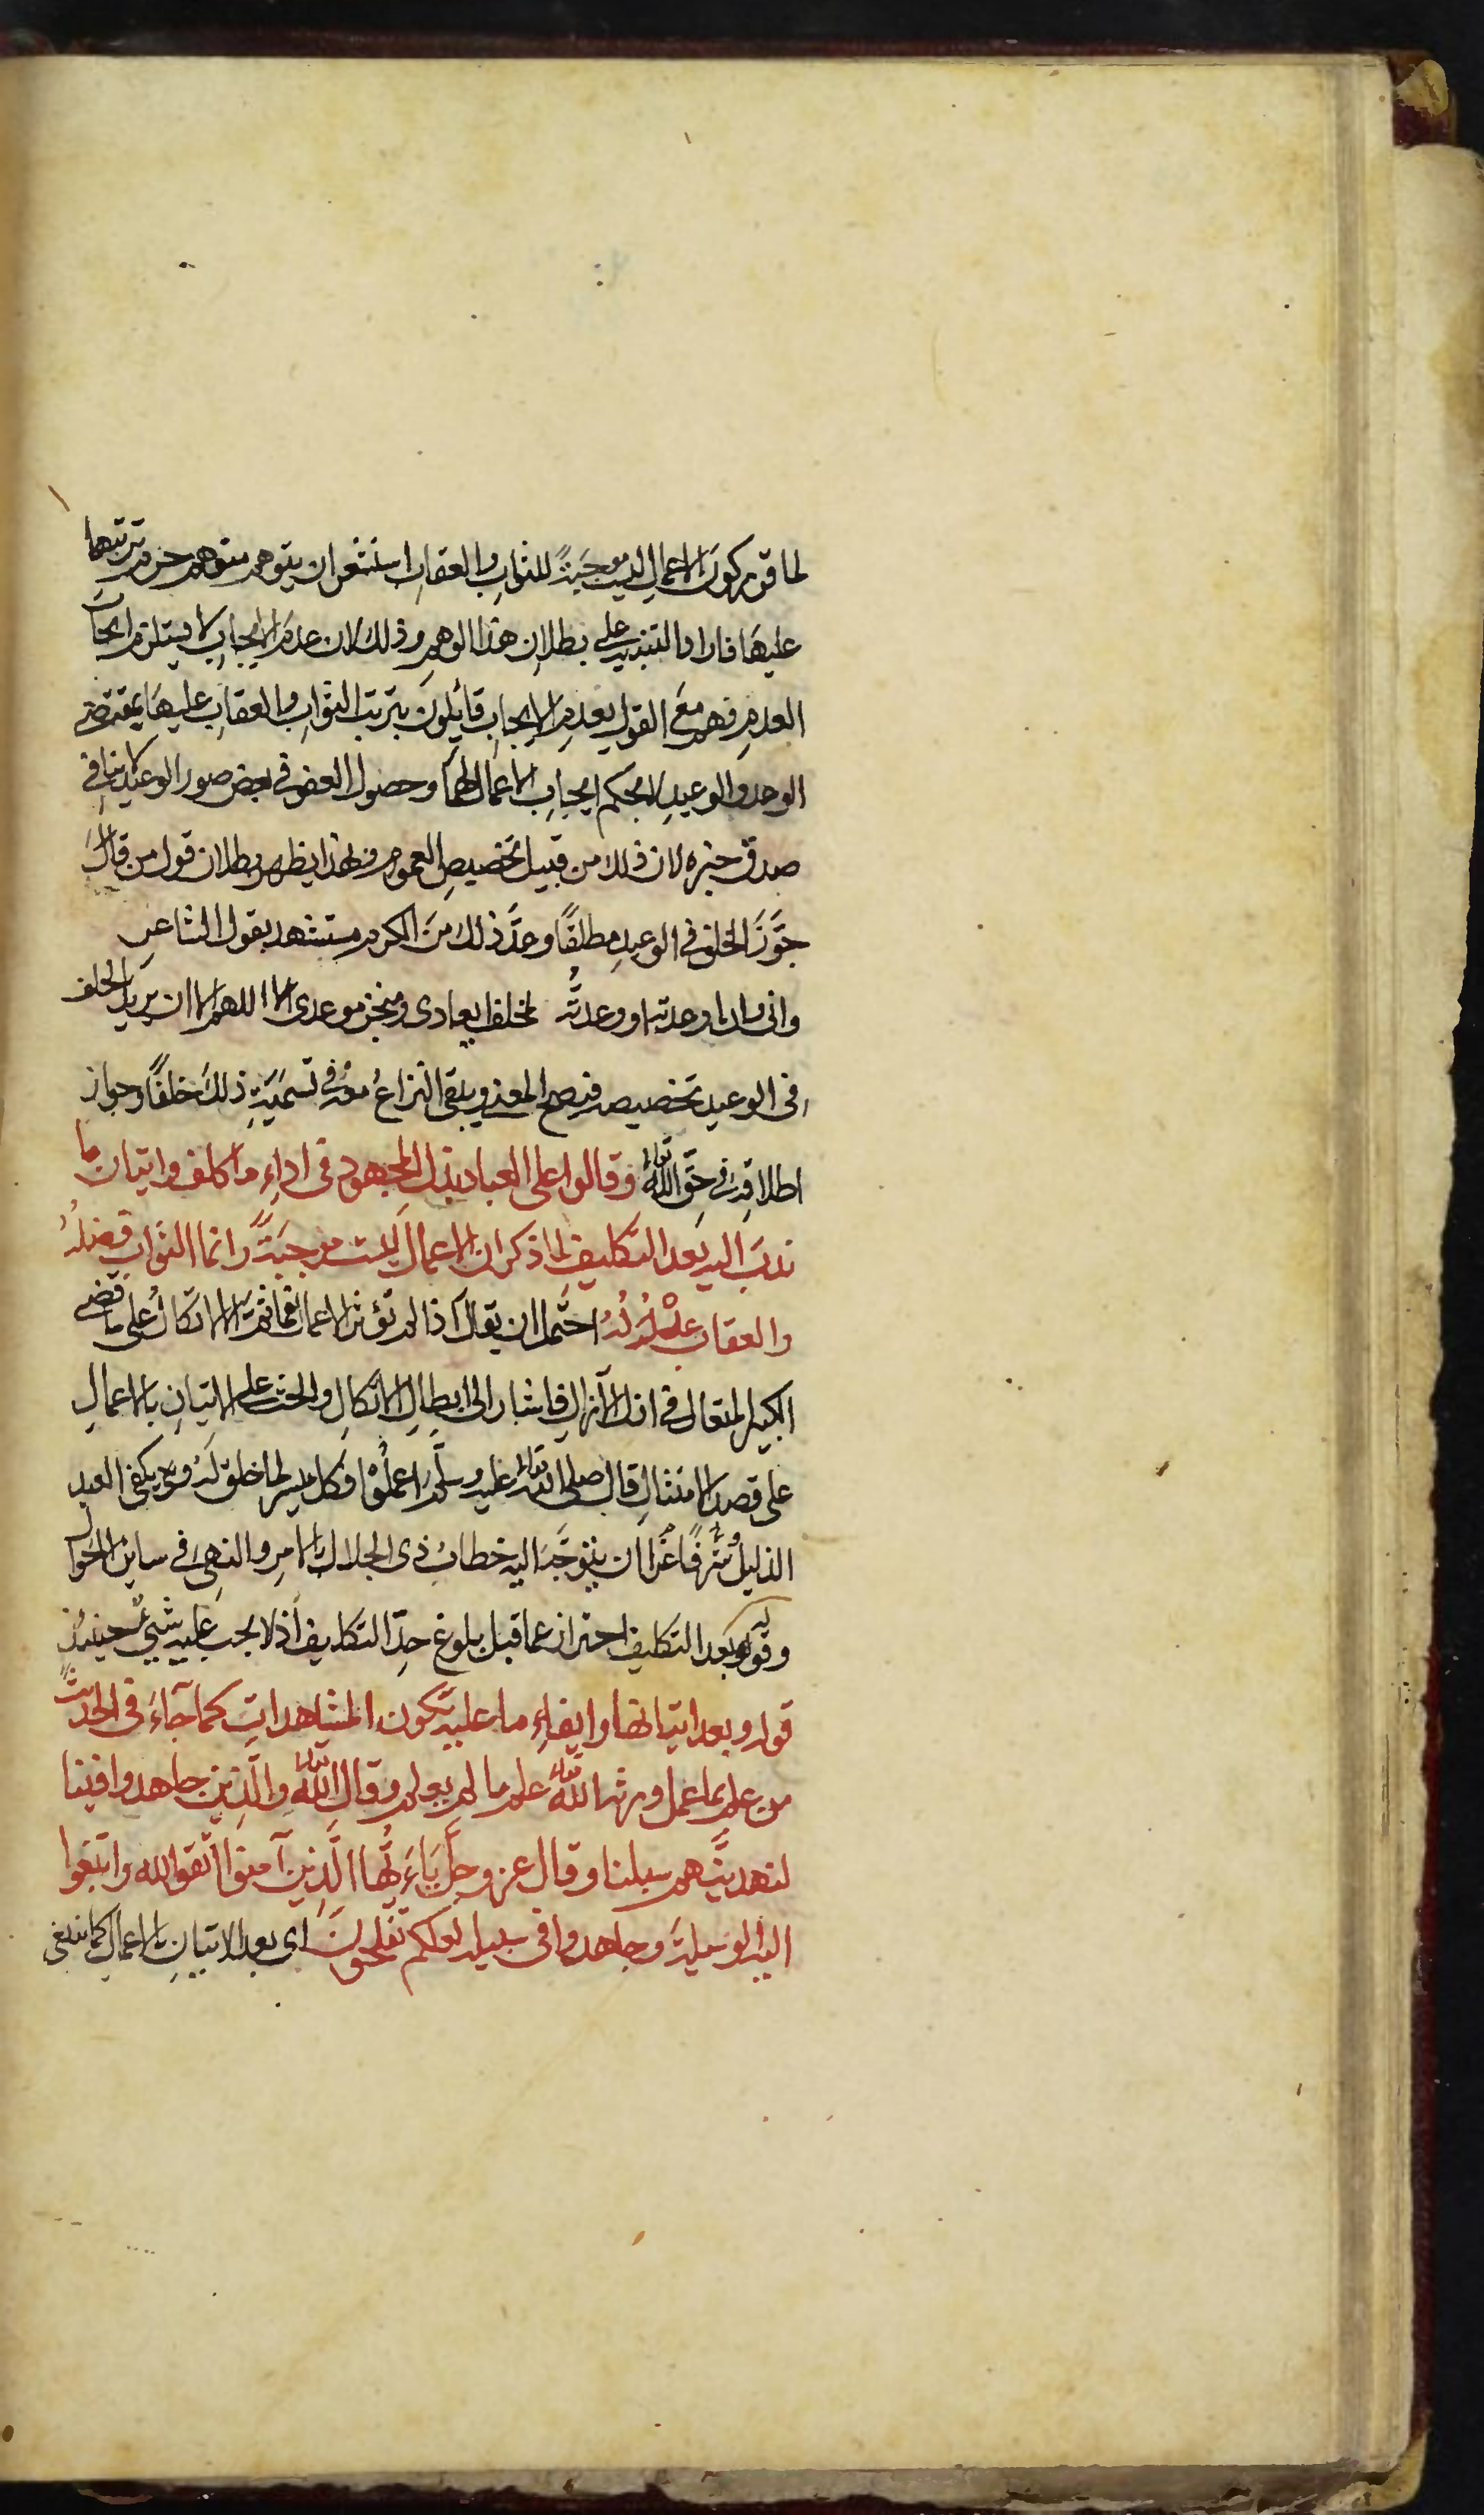 لما قرر كون الاعمال ليست موجبةً للثواب والعقاب استشعر ان يتوهم متوهم حرم ترتبهما
عليها فاراد التنبيه على بطلان هذا الوهم وذلك لان عدم الايجاب لا يستلزم ايجاب
العدم فهم مع القول بعدم الايجاب قائلون بترتب الثواب والعقاب عليها بمقتضى
الوعد والوعيد لا بحكم ايجاب الاعمال لهما وحصول العفو في بعض صور الوعيد لا ينافي
صدق خبره لان ذلك من قبيل تخصيص العموم وبهذا يظهر بطلان قول من قال
جوَّزَ الخلف في الوعيد مطلقًا وعدَّ ذلك من الكرم مستشهد بقول الشاعر
وانى وان اوعدته او وعدتُّه لمخلف ايعادى ومنجز موعدى الا اللهم الا ان يريد بالخلف
في الوعيد تخصيصه فيصح المعنى ويبقى النزاعُ معه في تسميَةِ ذلك خلفًا وجواز
اطلاقه في حق الله تعالى وقالوا على العباد بذل المجهود في اداء ما كلف واتيان ما
ندب اليه بعد التكليف لما ذكر ان الاعمال ليست موجبةً وانما الثواب فضلهُ
والعقاب عدْلُهُ احتمل ان يقال اذا لم تؤثر الاعمال فما ثمرته الا الاتكال على ما قضى
الكبير المتعال في ازل الآزال فاشار الى ابطال الاتكال والحث على الاتيان بالاعمال
على قصد الامتثال قال صلى الله تعالى عليه وسلَّم اعملُوْا فكل ميسر لما خلق له ويكفى العبد
الذليل شرفًا وعزًّا ان يتوجَّه اليه خطاب ذى الجلال بالامر والنهى في سائر الاحوال
وقوله بعد التكليف احتراز عما قبل بلوغ حدِّ التكليف اذ لا يجب عليه شيئ حينئذ
قوله وبعد اتيانها وايفاء ما عليه تكون المشاهدات كما جاء في الحديث
من عمل بما علم ورثه الله تعالى علم ما لم يعلم وقال الله تعالى والذين جاهدوا فينا
لنهدينَّهم سبلنا وقال عز وجل يا ايها الَّذين آمنوا اتَّقوا الله وابتغوا
اليه الوسيلة وجاهدوا في سبيله لعلكم تفلحون اى بعد الاتيان بالاعمال كما ينبغى